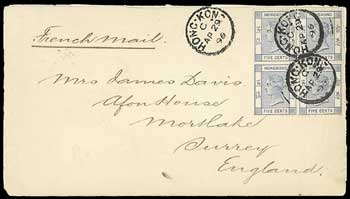 French Mail.
HONG-KONG
C
AP 29
96
HONG-KONG
C
AP 29
96
HONG-KONG
C
AP 29
96
HONG KONG
FIVE CENTS
FIVE CENTS
Mrs James Davis.
Afon House
Mortlake
Surrey
England.